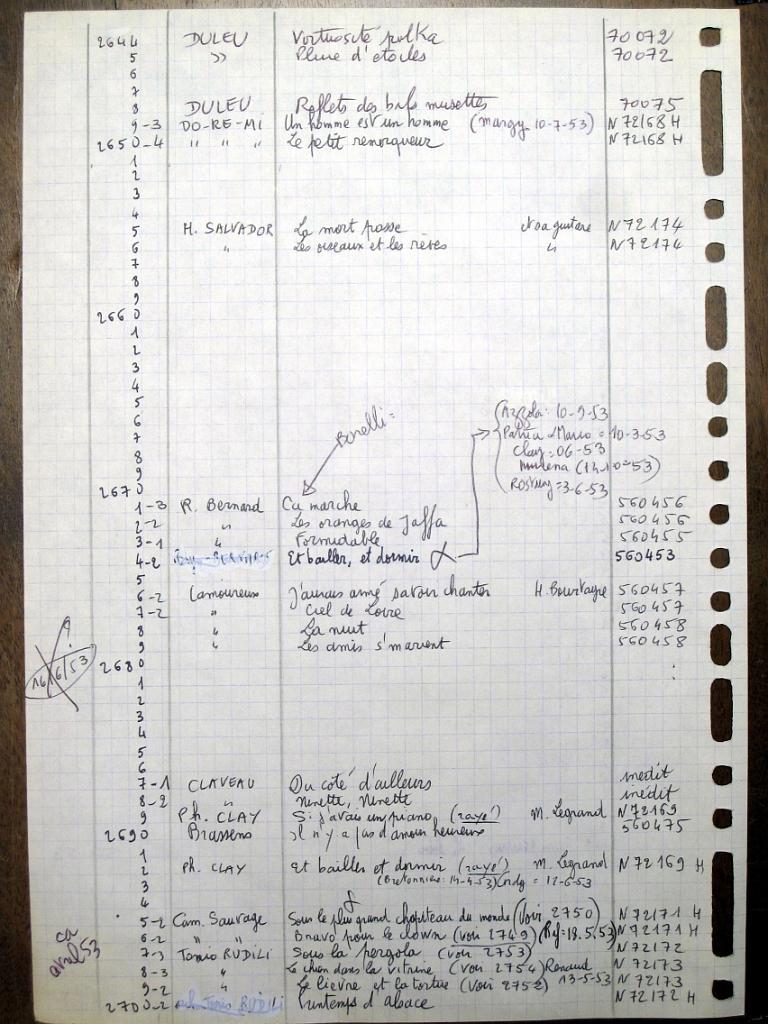 2644 DULEU Virtuosité polka 70072
5 " Pluie d'étoiles 70072
6
7
8 DULEU Reflets des bals musettes 70075
9-3 DO-RE-MI Un homme est un homme (Margy 10-7-53) N 72168 H
2650-4 " " " Le petit remorqueur N 72168 H
1
2
3
4
5 H. SALVADOR La mort passe et sa guitare N 72174
6 " Les oiseaux et les rêves " N 72174
7
8
9
2660
1
2
3
4
5 Azzola: 10-9-53
6 Borelli = Patrice et Mario = 10-3-53
7 Clay = 06-53
8 Mulena (14-10-53)
9 Rostaing = 3-6-53
2670
1-3 R. Bernard Ca marche 560456
2-2 " Les oranges de Jaffa 560456
3-1 " Formidable 560455
4-2 Et bailler, et dormir 560453
5
6-2 Lamoureux J'aurais aimé savoir chanter H. Bourtayre 560457
7-2 " Ciel de Loire 560457
8 " La nuit 560458
9 " Les amis s'marient 560458
?
16/6/53
2680
1
2
3
4
5
6
7-1 CLAVEAU Du coté d'ailleurs inedit
8-2 " Ninette, Ninette inédit
9 Ph. CLAY Si j'avais un piano (rayé) M. Legrand N 72169
2690 Brassens Il n'y a pas d'amour heureux 560475
1
2 Ph. CLAY Et bailles et dormir (rayé) M. Legrand N 72169 H
3 (Bretonnière: 14-4-53) Cordy = 12-6-53
4
5-2 Cam. Sauvage Sous le plus grand chapiteau du monde (voir 2750) N 72171 H
6-2 " " Bravo pour le clown (voir 2749) (Ref = 18.5.53) N 72171 H
7-3 Tonio RUDILI Sous la pergola (voir 2753) N 72172
8-3 " Le chien dans la vitrine (voir 2754) Renaud N 72173
9-2 " Le lievre et la tortue (voir 2752) 13-5-53 N 72173
2700-2 Tonio RUDILI Printemps d'alsace N 72172 H
ca avril 53